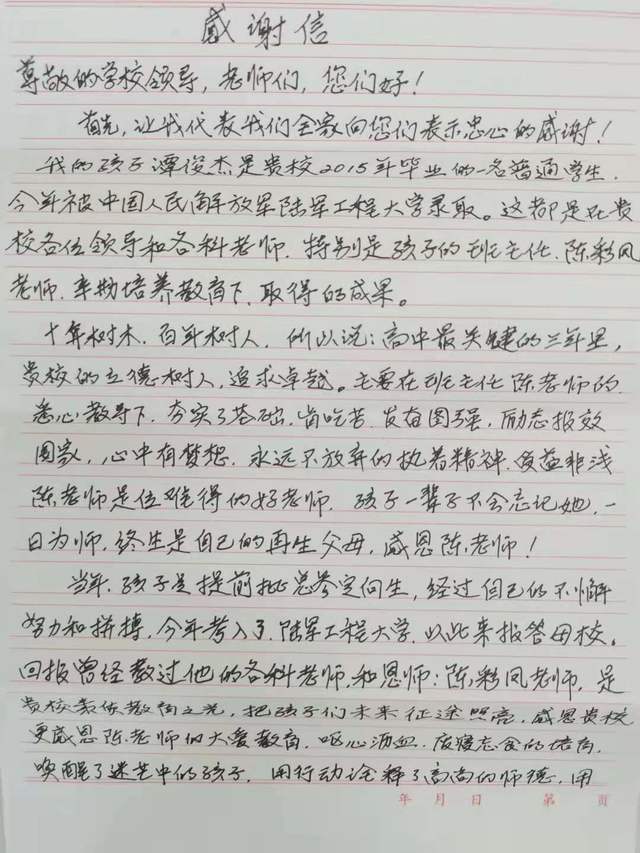 感谢信
尊敬的学校领导，老师们，您们好！
首先，让我代表我们全家向您们表示忠心的感谢！
我的孩子谭俊杰是贵校2015年毕业的一名普通学生，
今年被中国人民解放军陆军工程大学录取。这都是在贵
校各位领导和各科老师．特别是孩子的班主任．陈彩凤
老师．辛勤培养教育下．取得的成果。
十年树木．百年树人．所以说：高中最关键的三年里，
贵校的立德树人，追求卓越。主要在班主任陈老师的．
悉心教导下．夯实了基础．肯吃苦．发奋图强，励志报效
国家，心中有梦想．永远不放弃的执着精神．受益非浅
陈老师是位难得的好老师．孩子一辈子不会忘记她，一
日为师．终生是自己的再生父母，感恩陈老师！
当年．孩子是提前批总参定向生，经过自己的不懈
努力和拼搏．今年考入了．陆军工程大学．以此来报答母校．
回报曾经教过他的各科老师．和恩师：陈彩凤老师，是
贵校教育之光，把孩子们未来征途照亮，感恩贵校
更感恩陈老师的大爱教育．呕心沥血．废寝忘食的培育
唤醒了迷茫中的孩子．用行动诠释了高尚的师德，用
年 月 日 第 页